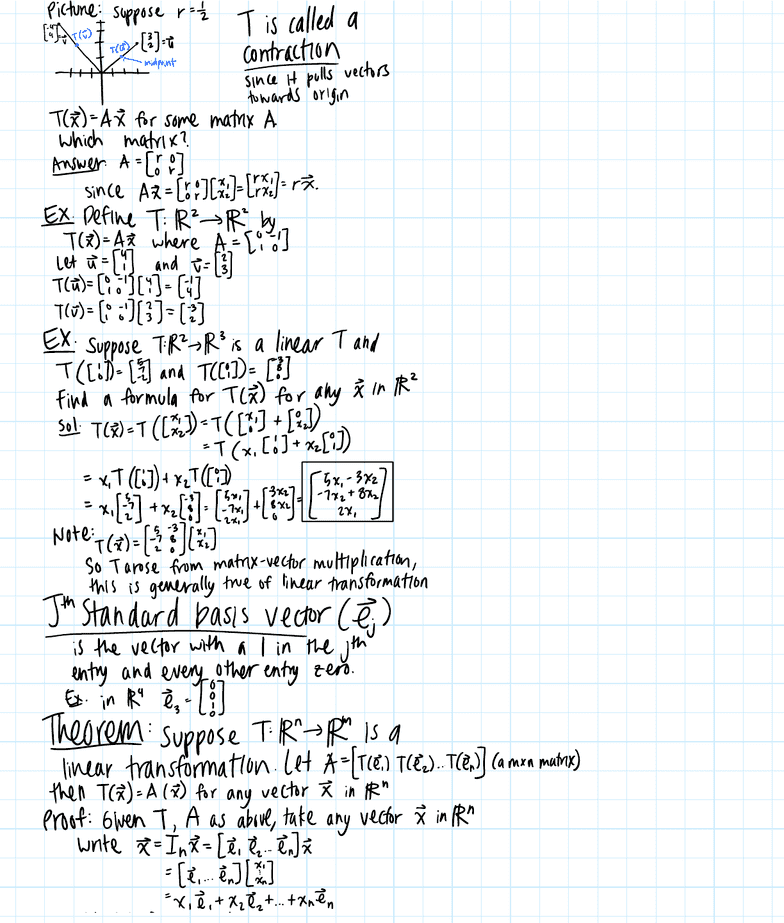 Picture: suppose r = 1/2
[-4 4] = v⃗ T(v⃗) T(u⃗) [3 2] = u⃗
midpoint
T is called a
contraction
since it pulls vectors
towards origin
T(x⃗) = Ax⃗ for some matrix A
Which matrix?
Answer: A = [r 0; 0 r]
since Ax⃗ = [r 0; 0 r][x₁; x₂] = [rx₁; rx₂] = rx⃗.
Ex. Define T: ℝ² → ℝ² by
T(x⃗) = Ax⃗ where A = [0 -1; 1 0]
Let u⃗ = [4; 1] and v⃗ = [2; 3]
T(u⃗) = [0 -1; 1 0][4; 1] = [-1; 4]
T(v⃗) = [0 -1; 1 0][2; 3] = [-3; 2]
Ex. Suppose T: ℝ² → ℝ³ is a linear T and
T([1; 0]) = [5; -7; 2] and T([0; 1]) = [-3; 8; 0]
Find a formula for T(x⃗) for any x⃗ in ℝ²
Sol. T(x⃗) = T([x₁; x₂]) = T([x₁; 0] + [0; x₂])
= T(x₁[1; 0] + x₂[0; 1])
= x₁T([1; 0]) + x₂T([0; 1])
= x₁[5; -7; 2] + x₂[-3; 8; 0] = [5x₁; -7x₁; 2x₁] + [3x₂; 8x₂; 0] = [5x₁ - 3x₂; -7x₂ + 8x₂; 2x₁]
Note: T(x⃗) = [5 -3; -7 8; 2 0][x₁; x₂]
So T arose from matrix-vector multiplication,
this is generally true of linear transformation
Jth Standard basis vector (e⃗ⱼ)
is the vector with a 1 in the jth
entry and every other entry zero.
Ex. in ℝ⁴ e⃗₃ = [0; 0; 1; 0]
Theorem: Suppose T: ℝⁿ → ℝᵐ is a
linear transformation. Let A = [T(e⃗₁) T(e⃗₂)... T(e⃗ₙ)] (a mxn matrix)
then T(x⃗) = A(x⃗) for any vector x⃗ in ℝⁿ
Proof: Given T, A as above, take any vector x⃗ in ℝⁿ
write x⃗ = Iₙx⃗ = [e⃗₁ e⃗₂... e⃗ₙ]x⃗
= [e⃗₁... e⃗ₙ][x₁; ⋮; xₙ]
= x₁e⃗₁ + x₂e⃗₂ + ... + xₙe⃗ₙ